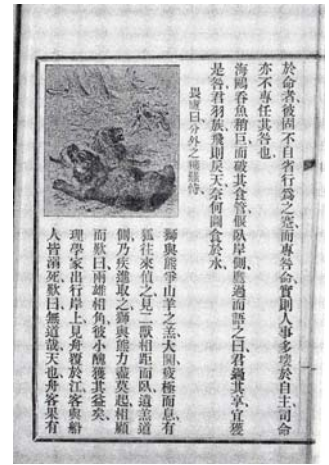 於命者、彼固不自省行爲之蹇、而專咎命、實則人事多壞於自主、司命
亦不專任其咎也、
海鷗吞魚稍巨、而破其食管、偃臥岸側、鳶過而語之曰、君其享、宜獲
是咎、君羽族、飛則戾天、奈何圖食於水、
畏廬曰、分外之難恃、
獅與熊爭山羊之羔、大鬭疲極而息、有
狐往來偵之、見二獸相距而臥、遺羔道
側、乃疾進取之、獅與熊力盡莫起、相顧
而歎曰、兩雄相角、彼小醜獲其益矣、
理學家出行岸上、見舟覆於江、客與船
人皆溺死、歎曰、無道哉天也、舟客果有